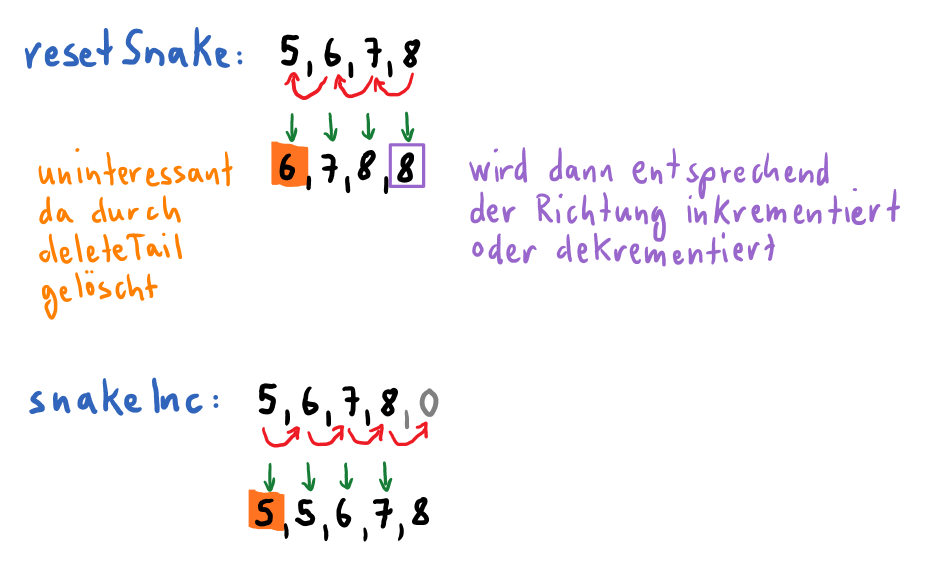 resetSnake: 5,6,7,8
6,7,8,8
uninteressant
da durch
deleteTail
gelöscht
wird dann entsprechend
der Richtung inkrementiert
oder dekrementiert
snakeInc: 5,6,7,8,0
5,5,6,7,8